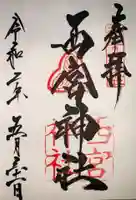 奉拝
西宮神社
西宮
神社
令和二年
五月